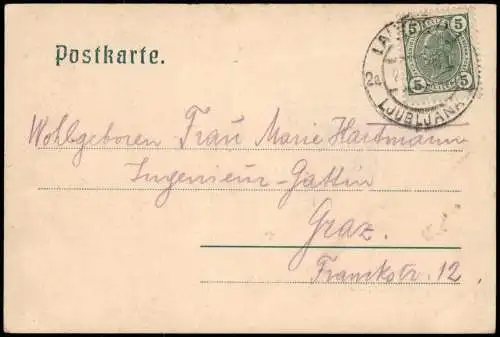 Postkarte.
5 5
5 5
2a
LJUBLJANA
Wohlgeboren Frau Marie Hartmann
Ingenieur-Gattin
Graz.
Franckstr. 12.